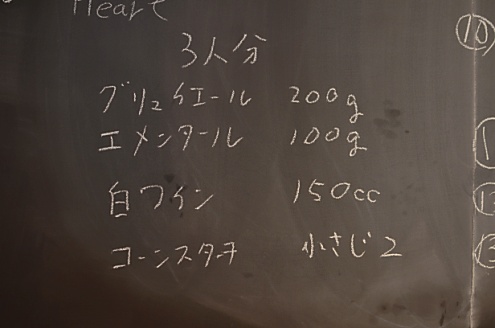 Heart
3人分
グリュイエール 200g
エメンタール 100g
白ワイン 150cc
コーンスターチ 小さじ2
⑩